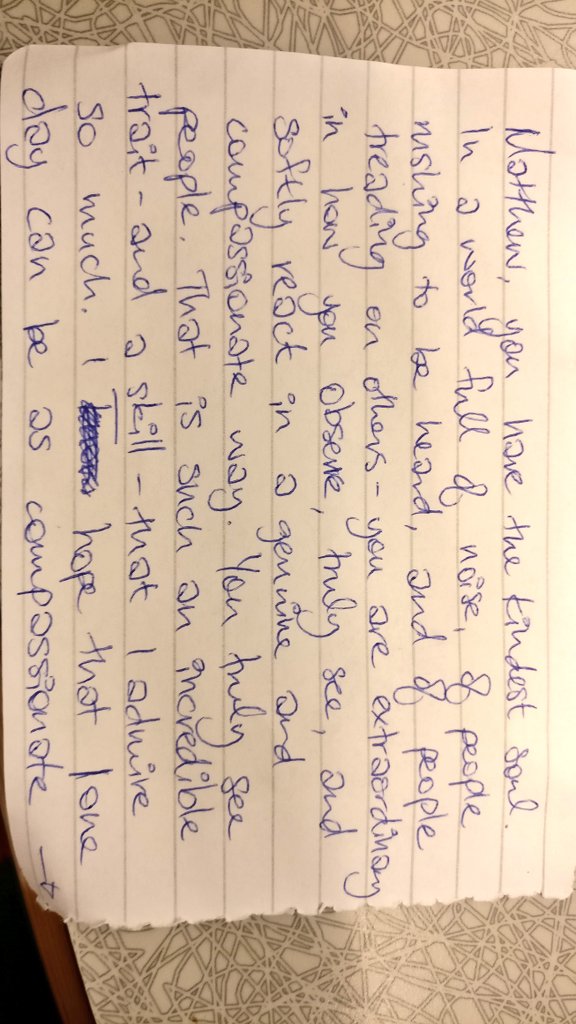 Matthew, you have the kindest soul.
In a world full of noise, of people
rushing to be heard, and of people
treading on others - you are extraordinary
in how you observe, truly see, and
softly react in a genuine and
compassionate way. You truly see
people. That is such an incredible
trait - and a skill - that I admire
so much. I hope that I one
day can be as compassionate →